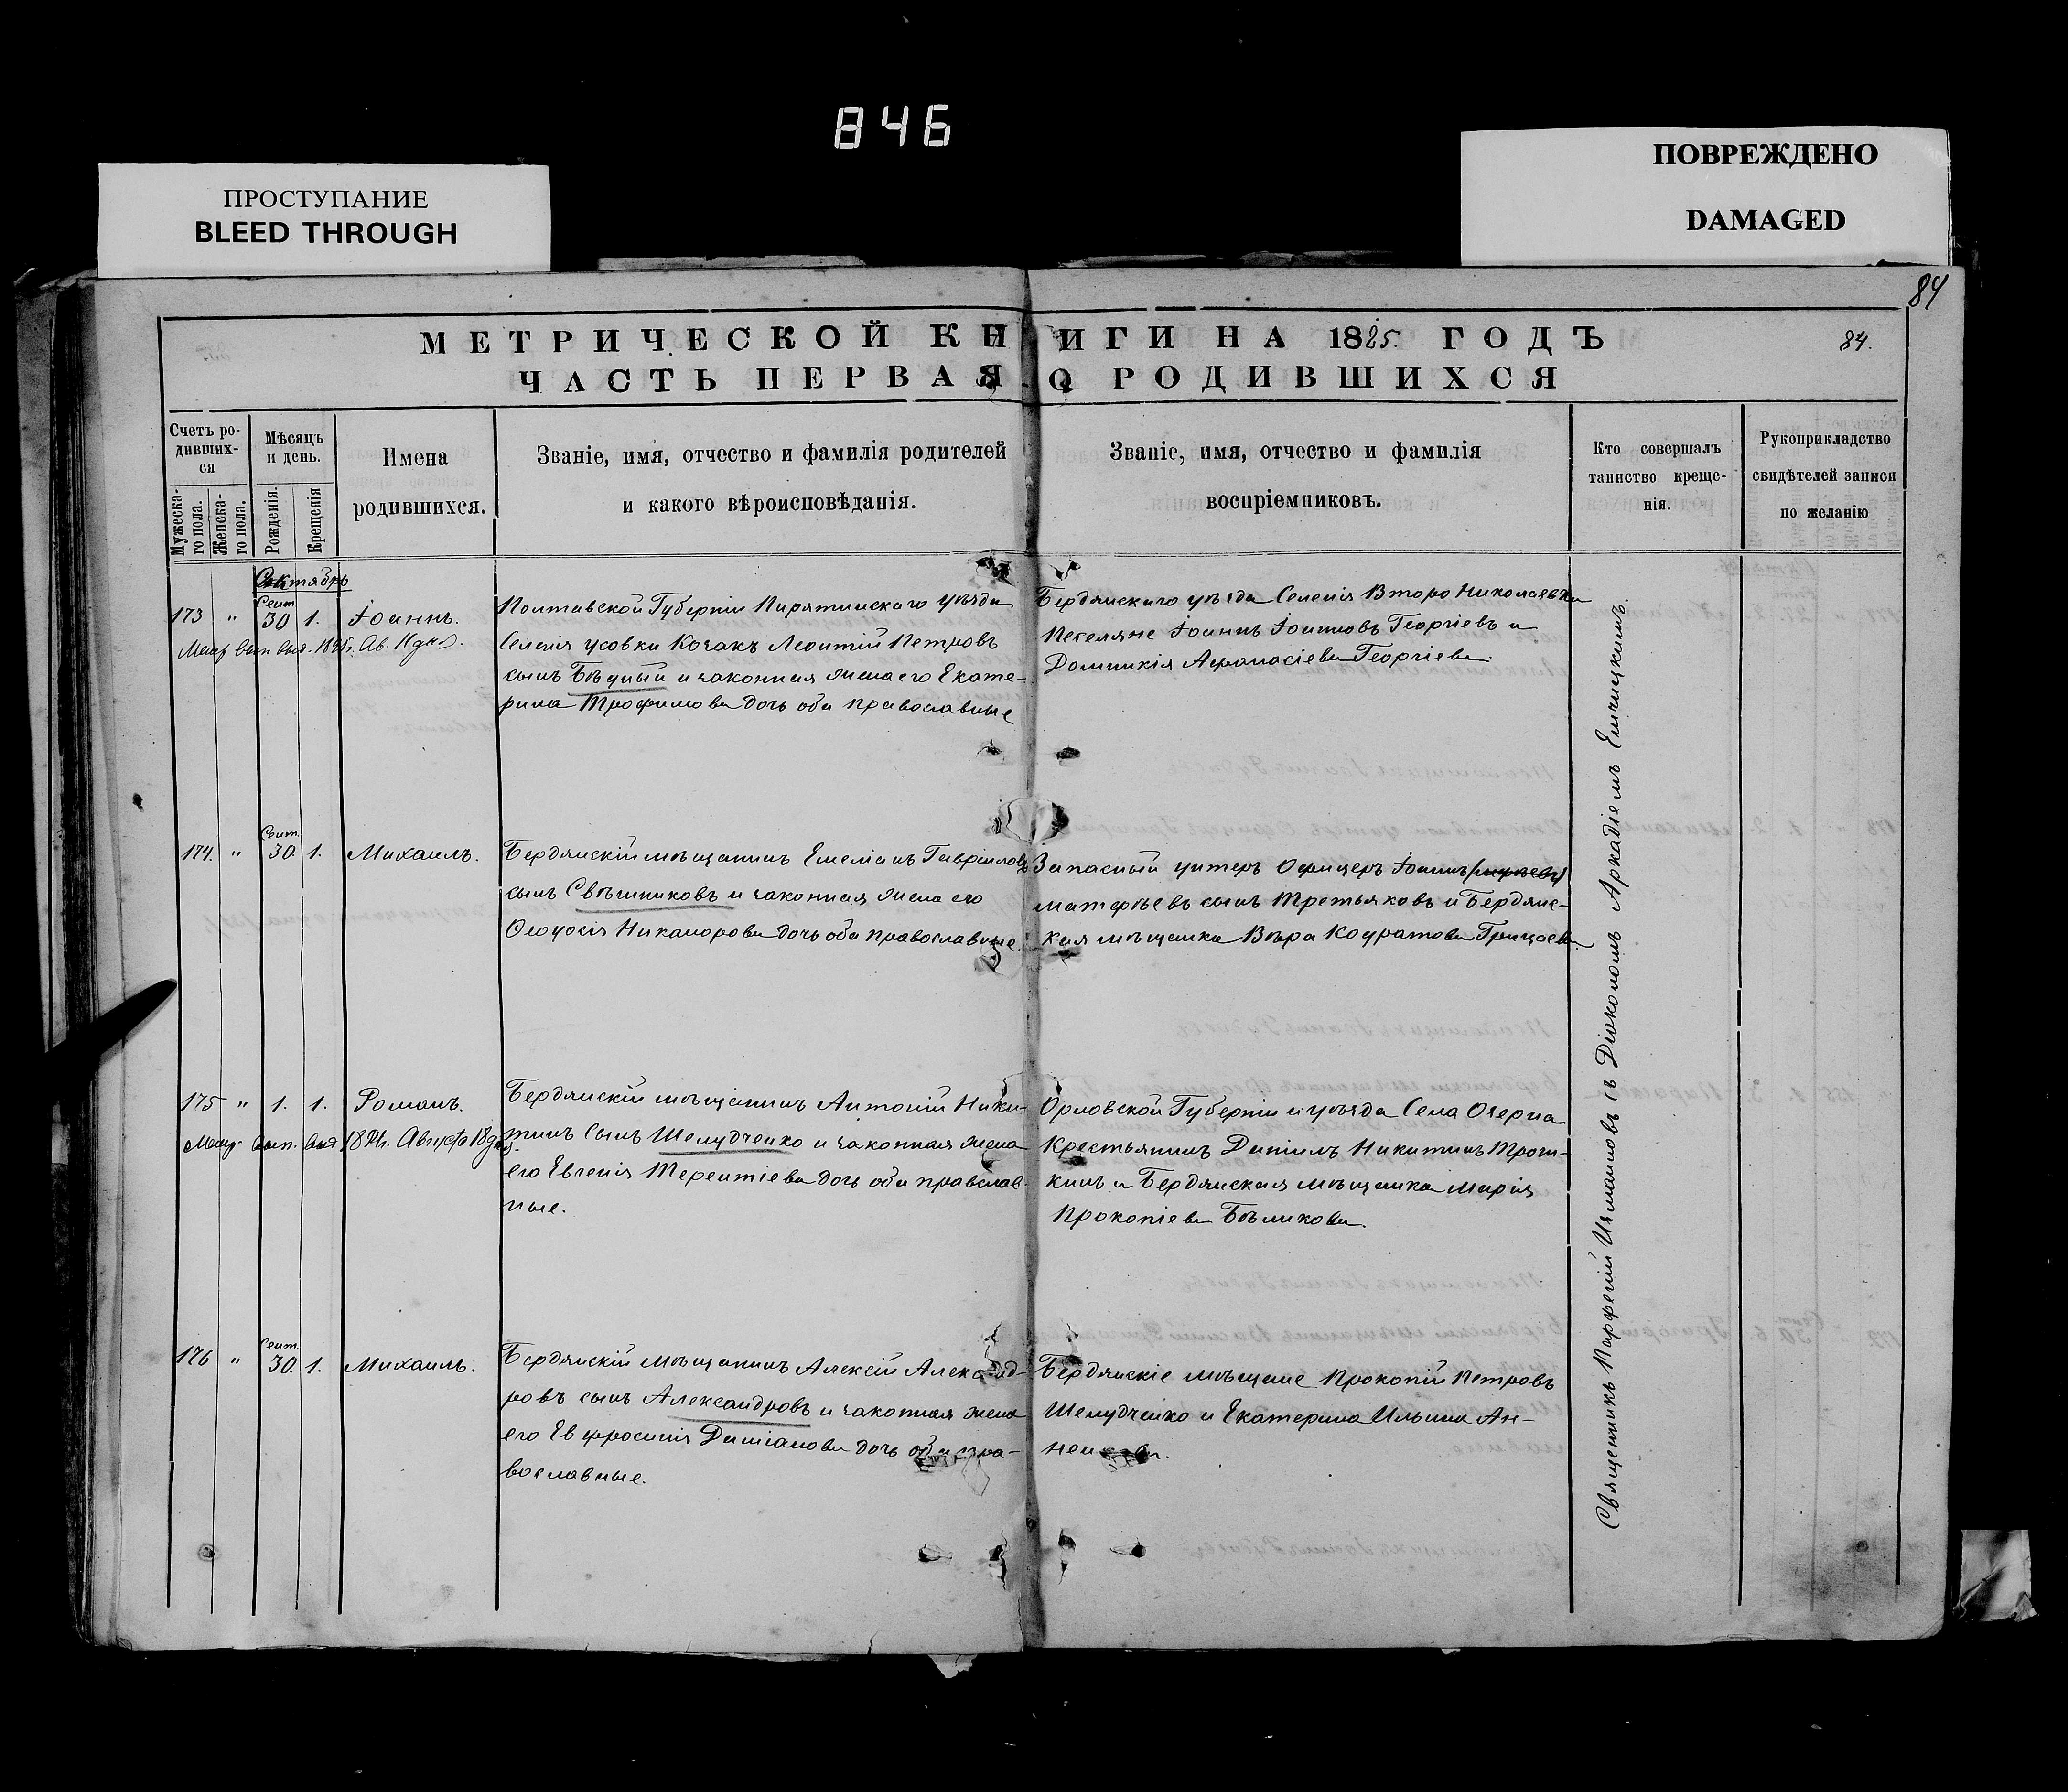 846
ПРОСТУПАНИЕ
BLEED THROUGH
ПОВРЕЖДЕНО
DAMAGED
84
МЕТРИЧЕСКОЙ КНИГИ НА 1885. ГОДЪ
84.
ЧАСТЬ ПЕРВАЯ О РОДИВШИХСЯ
Счетъ ро-
дивших-
ся
Мужеска-
го пола.
Женска-
го пола.
Мѣсяцъ
и день.
Рожденія.
Крещенія
Имена
родившихся.
Званіе, имя, отчество и фамилія родителей
и какого вѣроисповѣданія.
Званіе, имя, отчество и фамилія
воспріемниковъ.
Кто совершалъ
таинство креще-
нія.
Рукоприкладство
свидѣтелей записи
по желанію
Октябрь
173 " Сент. 30 1. Іоаннъ.
Полтавской Губерніи Пирятинскаго уѣзда
Селенія Усовки Козакъ Леонтій Петровъ
сынъ Бѣдный и законная жена его Екате-
рина Трофимова дочь оба православные
Бердянскаго уѣзда Селенія Второ Николаевки
Поселяне Іоаннъ Іоанновъ Георгіевъ и
Домникія Афанасіева Георгіева.
174. " Сент. 30. 1. Михаилъ.
Бердянскій мѣщанинъ Емеліанъ Гавріиловъ
сынъ Свѣшниковъ и законная жена его
Ѳеодосія Никанорова дочь оба православные.
Запасный унтеръ Офицеръ Іоаннъ
Матфѣевъ сынъ Третьяковъ и Бердянс-
кая мѣщанка Вѣра Кодратова Грицаева.
175 " 1. 1. Романъ.
Бердянскій мѣщанинъ Антоній Ники-
тинъ Сынъ Шелудченко и законная жена
его Евгенія Терентіева дочь оба православ-
ные.
Орловской Губерніи и уѣзда Села Озерна
Крестьянинъ Даніилъ Никитинъ
и Бердянская мѣщанка Марія
Прокопіева Бѣликова.
176 " Сент. 30. 1. Михаилъ.
Бердянскій мѣщанинъ Алексій Александ-
ровъ сынъ Александровъ и законная жена
его Евфросинія Даміанова дочь оба пра-
вославные.
Бердянскіе мѣщане Прокопій Петровъ
Шелудченко и Екатерина Ильина Ан-
ненкова.
Священникъ Парфеній Измаиловъ съ Діакономъ Аркадіемъ